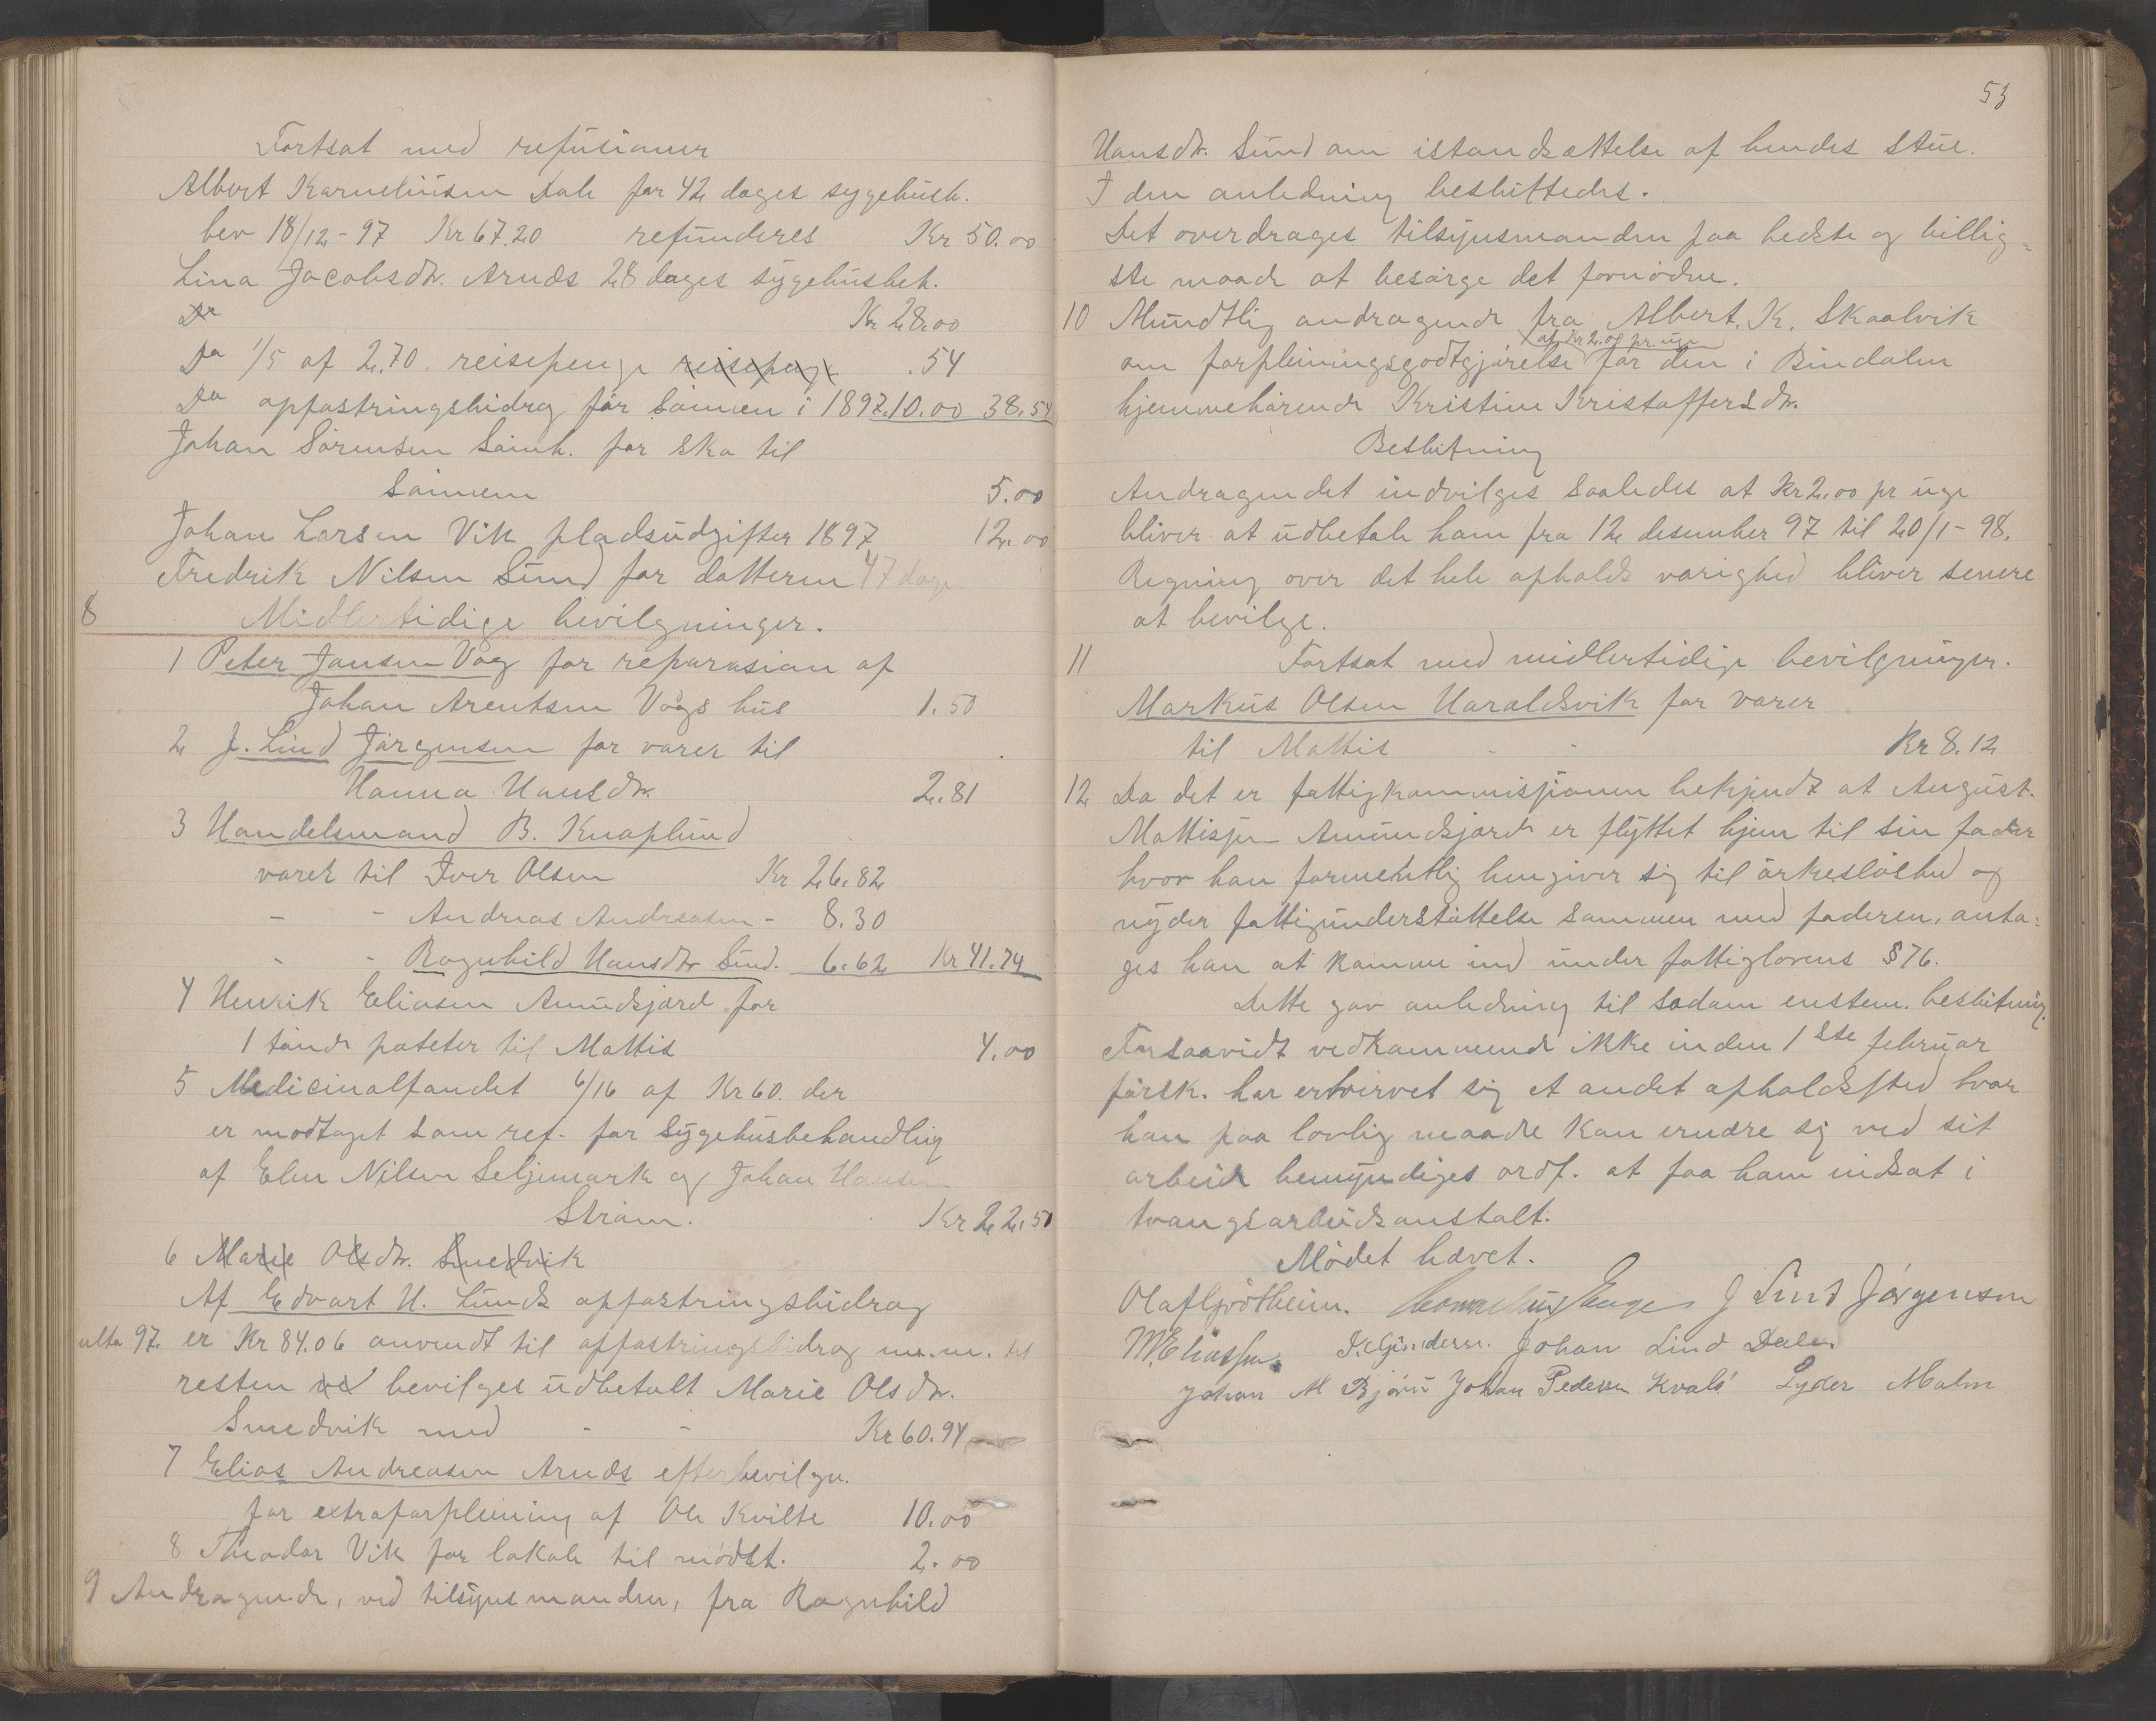 Fortsat med refusioner
Albert Karneliusen Dale for 42 dages sygehusb.
bev 18/12-97 Kr 67.20 refunderes Kr 50.00
Lina Jacobsdtr. Arnds 28 dages sygehusbeh.
Do Kr 28.00
Do 1/5 af 2.70. reisepenge reisepenge .54
Do opfostringsbidrag for sønnen i 1897 10.00 38.54
Johan Sørensen Sømh. for sko til
sønnen 5.00
Johan Larsen Vik pladsudgifter 1897 12.00
Fredrik Nilsen Sund for datteren 47 dage
8 Midlertidige bevilgninger.
1 Peter Jansen Vaag for reparasion af
Johan Arentsen Vågs hus 1.50
2 J. Lind Jørgensen for varer til
Hanna Hansdtr. 2.81
3 Handelsmand B. Knaplund
varer til Iver Olsen Kr 26.82
- - Andreas Andreasen - 8.30
- - Ragnhild Hansdtr Sund. 6.62 Kr 41.74
4 Henrik Eliasen Amundsjord for
1 tønde poteter til Mattis 4.00
5 Medicinalfondet 6/16 af Kr 60. der
er modtaget som ref. for sygehusbehandling
af Elen Nilsen Seljemark og Johan Hansen
Strøm. Kr 22.50
6 Marie Olsdtr. Smedvik
Af Edvart H. Lunds opfostringsbidrag
ulto 97. er Kr 84.06 anvendt til opfostringsbidrag m.m. til
resten ved bevilges udbetalt Marie Olsdtr.
Smedvik med - - Kr 60.94
7 Elias Andreasen Arnds efterbevilgn.
for extraforpleining af Ole Kvilte 10.00
8 Theodor Vik for lokale til mødet. 2.00
9 Andragende, ved tilsynsmanden, fra Ragnhild
53
Hansdtr. Sund om istandsættelse af hendes stue.
I den anledning besluttedes.
Det overdrages tilsynsmanden paa bedste og billig-
ste maade at besørge det fornødne.
10 Mundtlig andragende fra Albert. K. Skaalvik
af Kr 2.00 pr. uge
om forpleiningsgodtgjørelse for den i Bindalen
hjemmehørende Kristine Kristoffersdtr.
Beslutning
Andragendet indvilges saaledes at Kr 2.00 pr uge
bliver at udbetale ham fra 12 desember 97 til 20/1-98.
Regning over det hele opholds varighed bliver senere
at bevilge.
11 Fortsat med midlertidige bevilgninger.
Markus Olsen Haraldsvik for varer
til Mattis - - Kr 8.12
12 Da det er fattigkommisjionen bekjendt at August.
Mattisen Amundsjord er flyttet hjem til sin fader
hvor han formentlig hengiver sig til ørkesløshed og
nyder fattigunderstøttelse sammen med faderen, anta-
ges han at komme ind under fattiglovens § 76.
Dette gav anledning til sodann enstem. beslutning.
Forsaavidt vedkommende ikke inden 1ste februar
førstk. har erhvervet sig et andet opholdssted hvor
han paa lovlig maade kan ernære sig ved sit
arbeide bemyndiges ordf. at faa ham indsat i
tvangsarbeidsanstalt.
Mødet hævet.
Olaf Gjørtheim. J Lind Jørgensen
M. Eliassen. Johan Lind Dale.
Johan M Bjørn Johan Pedersen Kvalø Lyder Malm